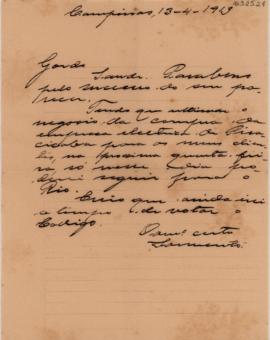 Campinas, 13-4-1929
Gordo
Saude. Parabens
pelo successo do seu pa-
recer.
Tendo que ultimar o
negocio da compra da
empresa electrica de Pira-
cicaba para os meus clien-
tes, na proxima quinta fei-
ra só nesse dia po-
derei seguir para o
Rio.
Creio que ainda irei
a tempo de votar o
Codigo.
Sarmento